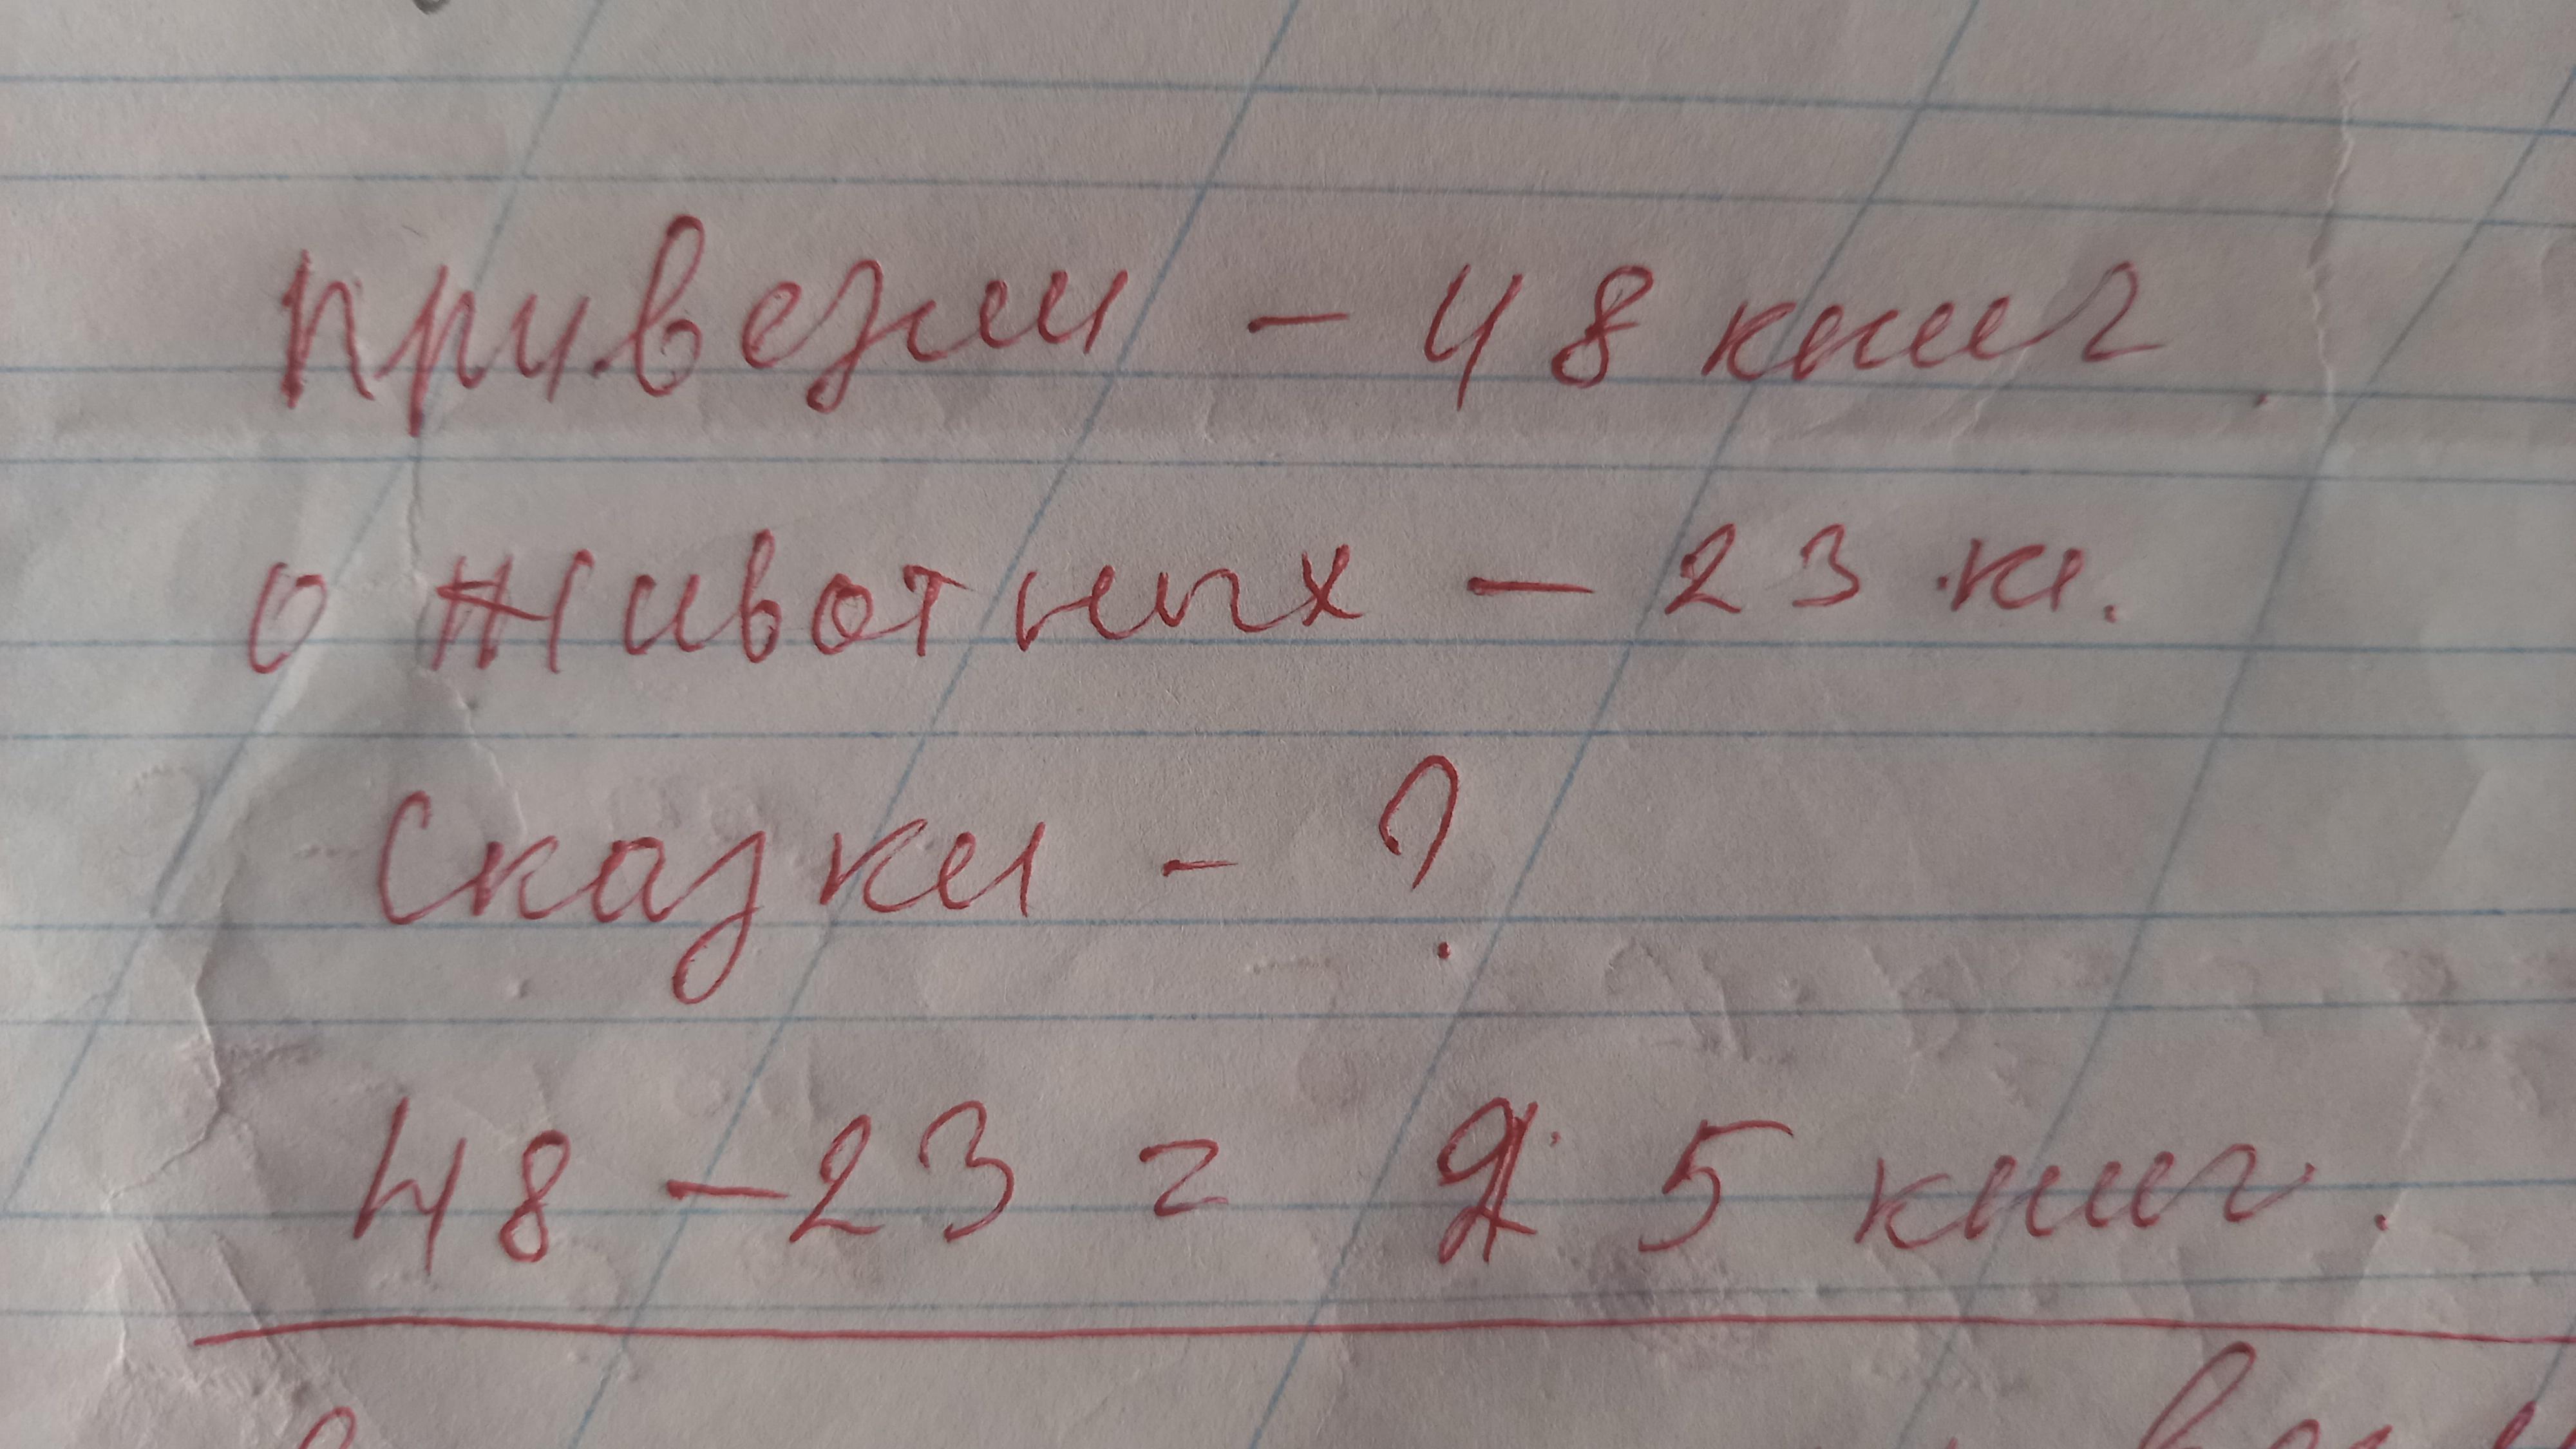 привезли - 48 книг.
о животных - 23 кн.
Сказки - ?
48 - 23 = 25 книг.